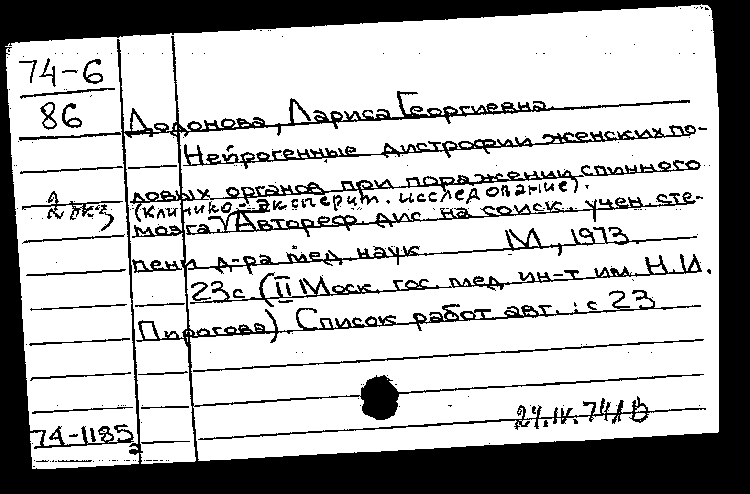 74-6
86
Додонова, Лариса Георгиевна.
Нейрогенные дистрофии женских по-
ловых органов при поражении спинного
(клинико-эксперим. исследование).
мозга. Автореф. дис. на соиск. учен. сте-
2 экз
пени д-ра мед. наук. М., 1973.
23с (II Моск. гос. мед. ин-т им. Н.И.
Пирогова). Список работ авт.: с 23
24.IV.74
74-1185